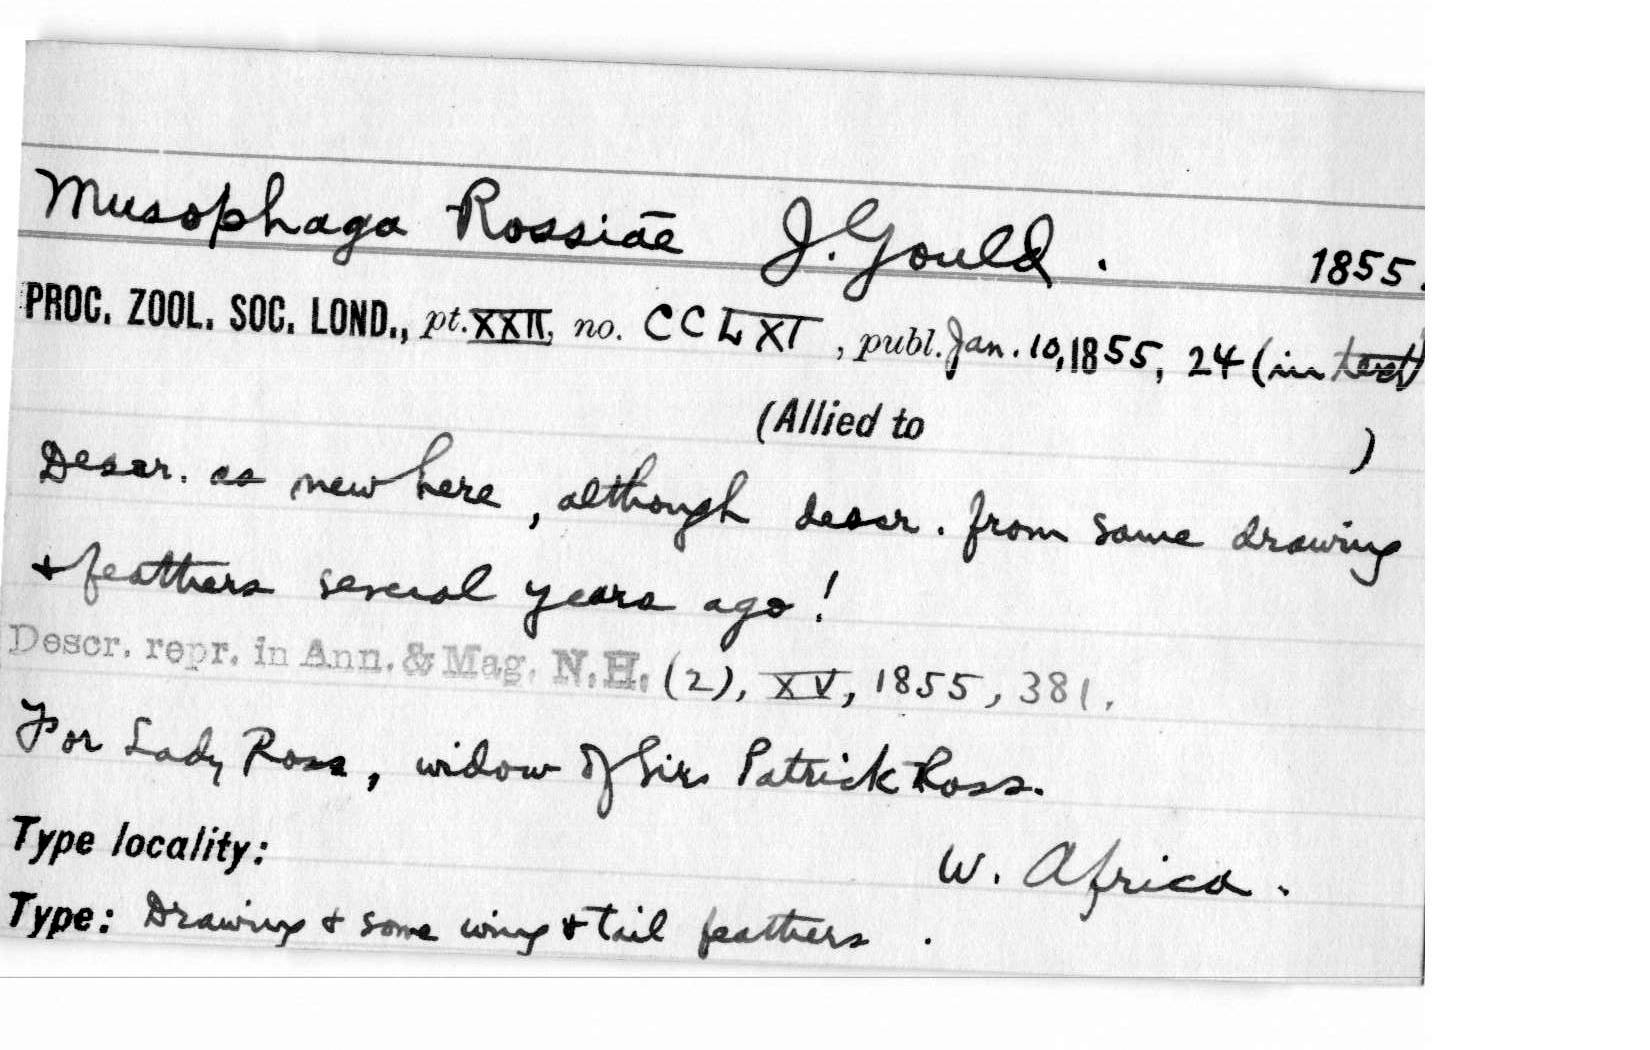 Musophaga Rossiae J. Gould. 1855.
PROC. ZOOL. SOC. LOND., pt. XXII, no. CCLXI, publ. Jan. 10, 1855, 24 (in text)
(Allied to )
Descr. as new here, although descr. from same drawing
+ feathers several years ago!
Descr. repr. in Ann. & Mag. N.H. (2), XV, 1855, 381.
For Lady Ross, widow of Sir Patrick Ross.
Type locality: W. Africa.
Type: Drawing + some wing + tail feathers.